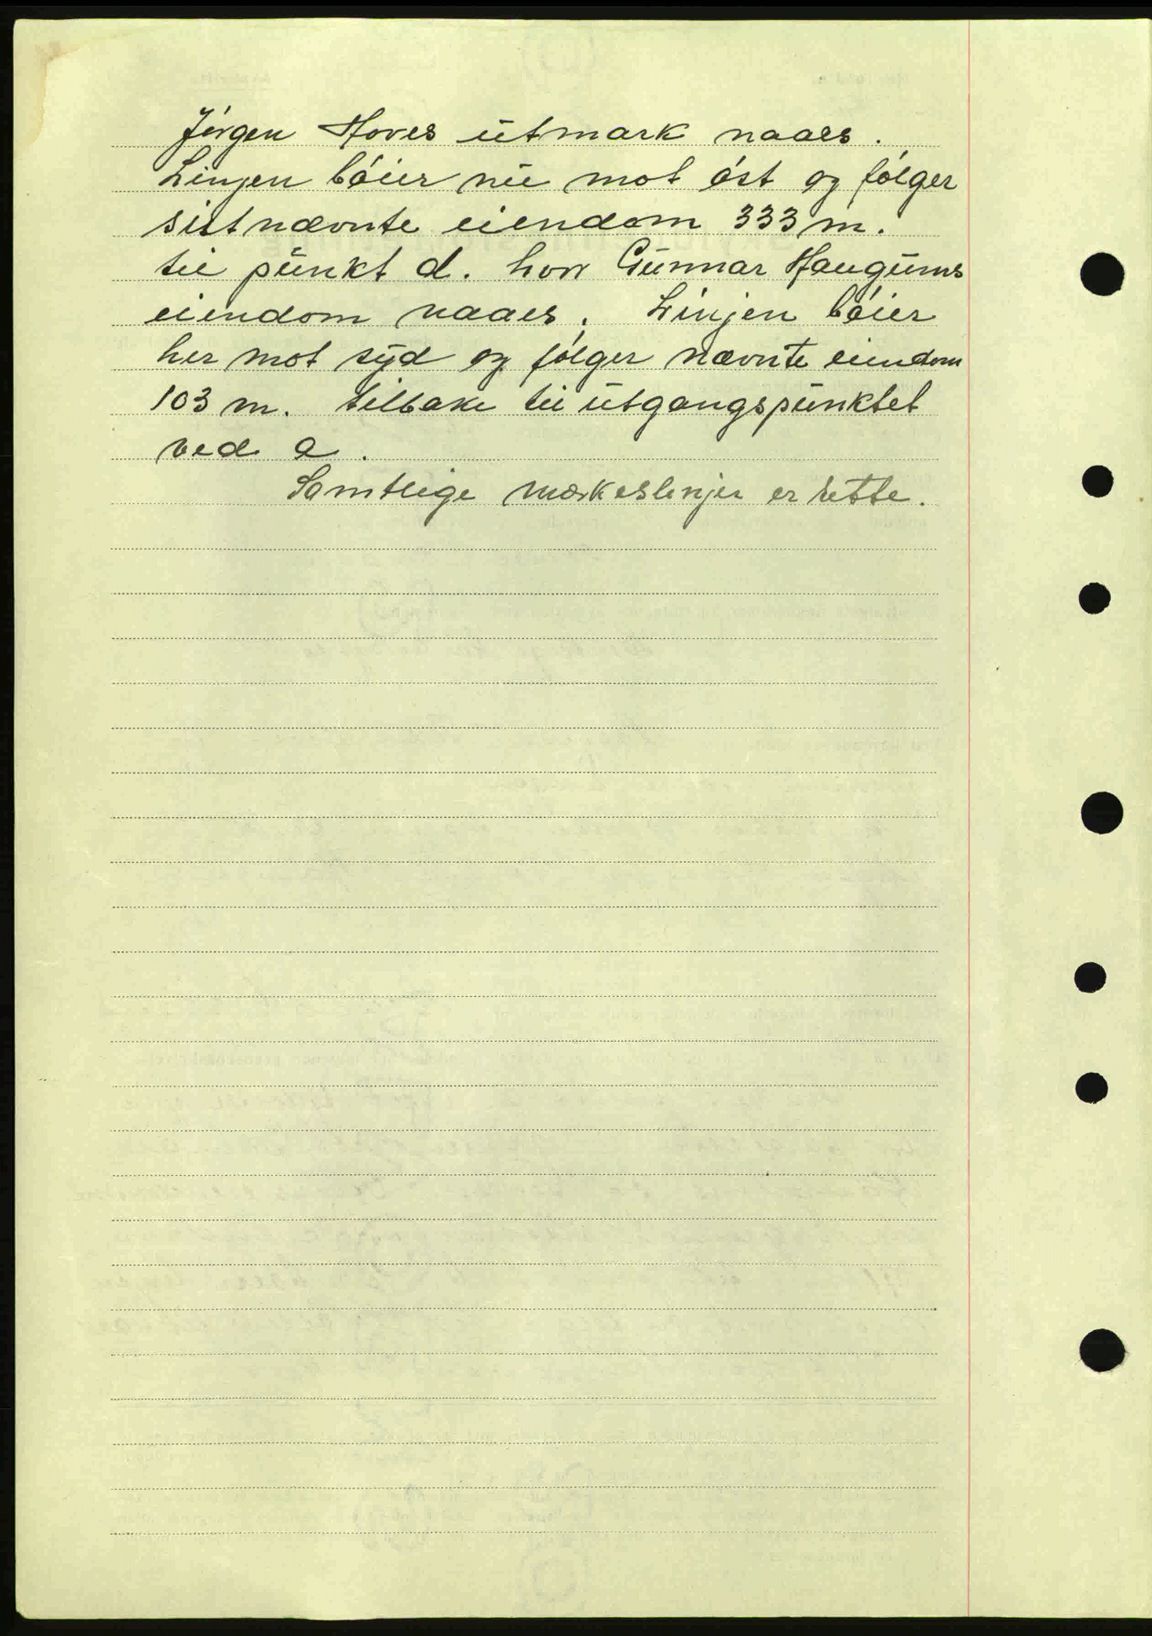 Jörgen Hoves utmark naaes.
Linjen böier nu mot öst og fölger
sistnævnte eiendom 333 m.
til punkt d. hvor Gunnar Haugums
eiendom naaes. Linjen böier
her mot syd og fölger nævnte eiendom
103 m. tilbake til utgangspunktet
ved a.
Samtlige merkeslinjer er rette.